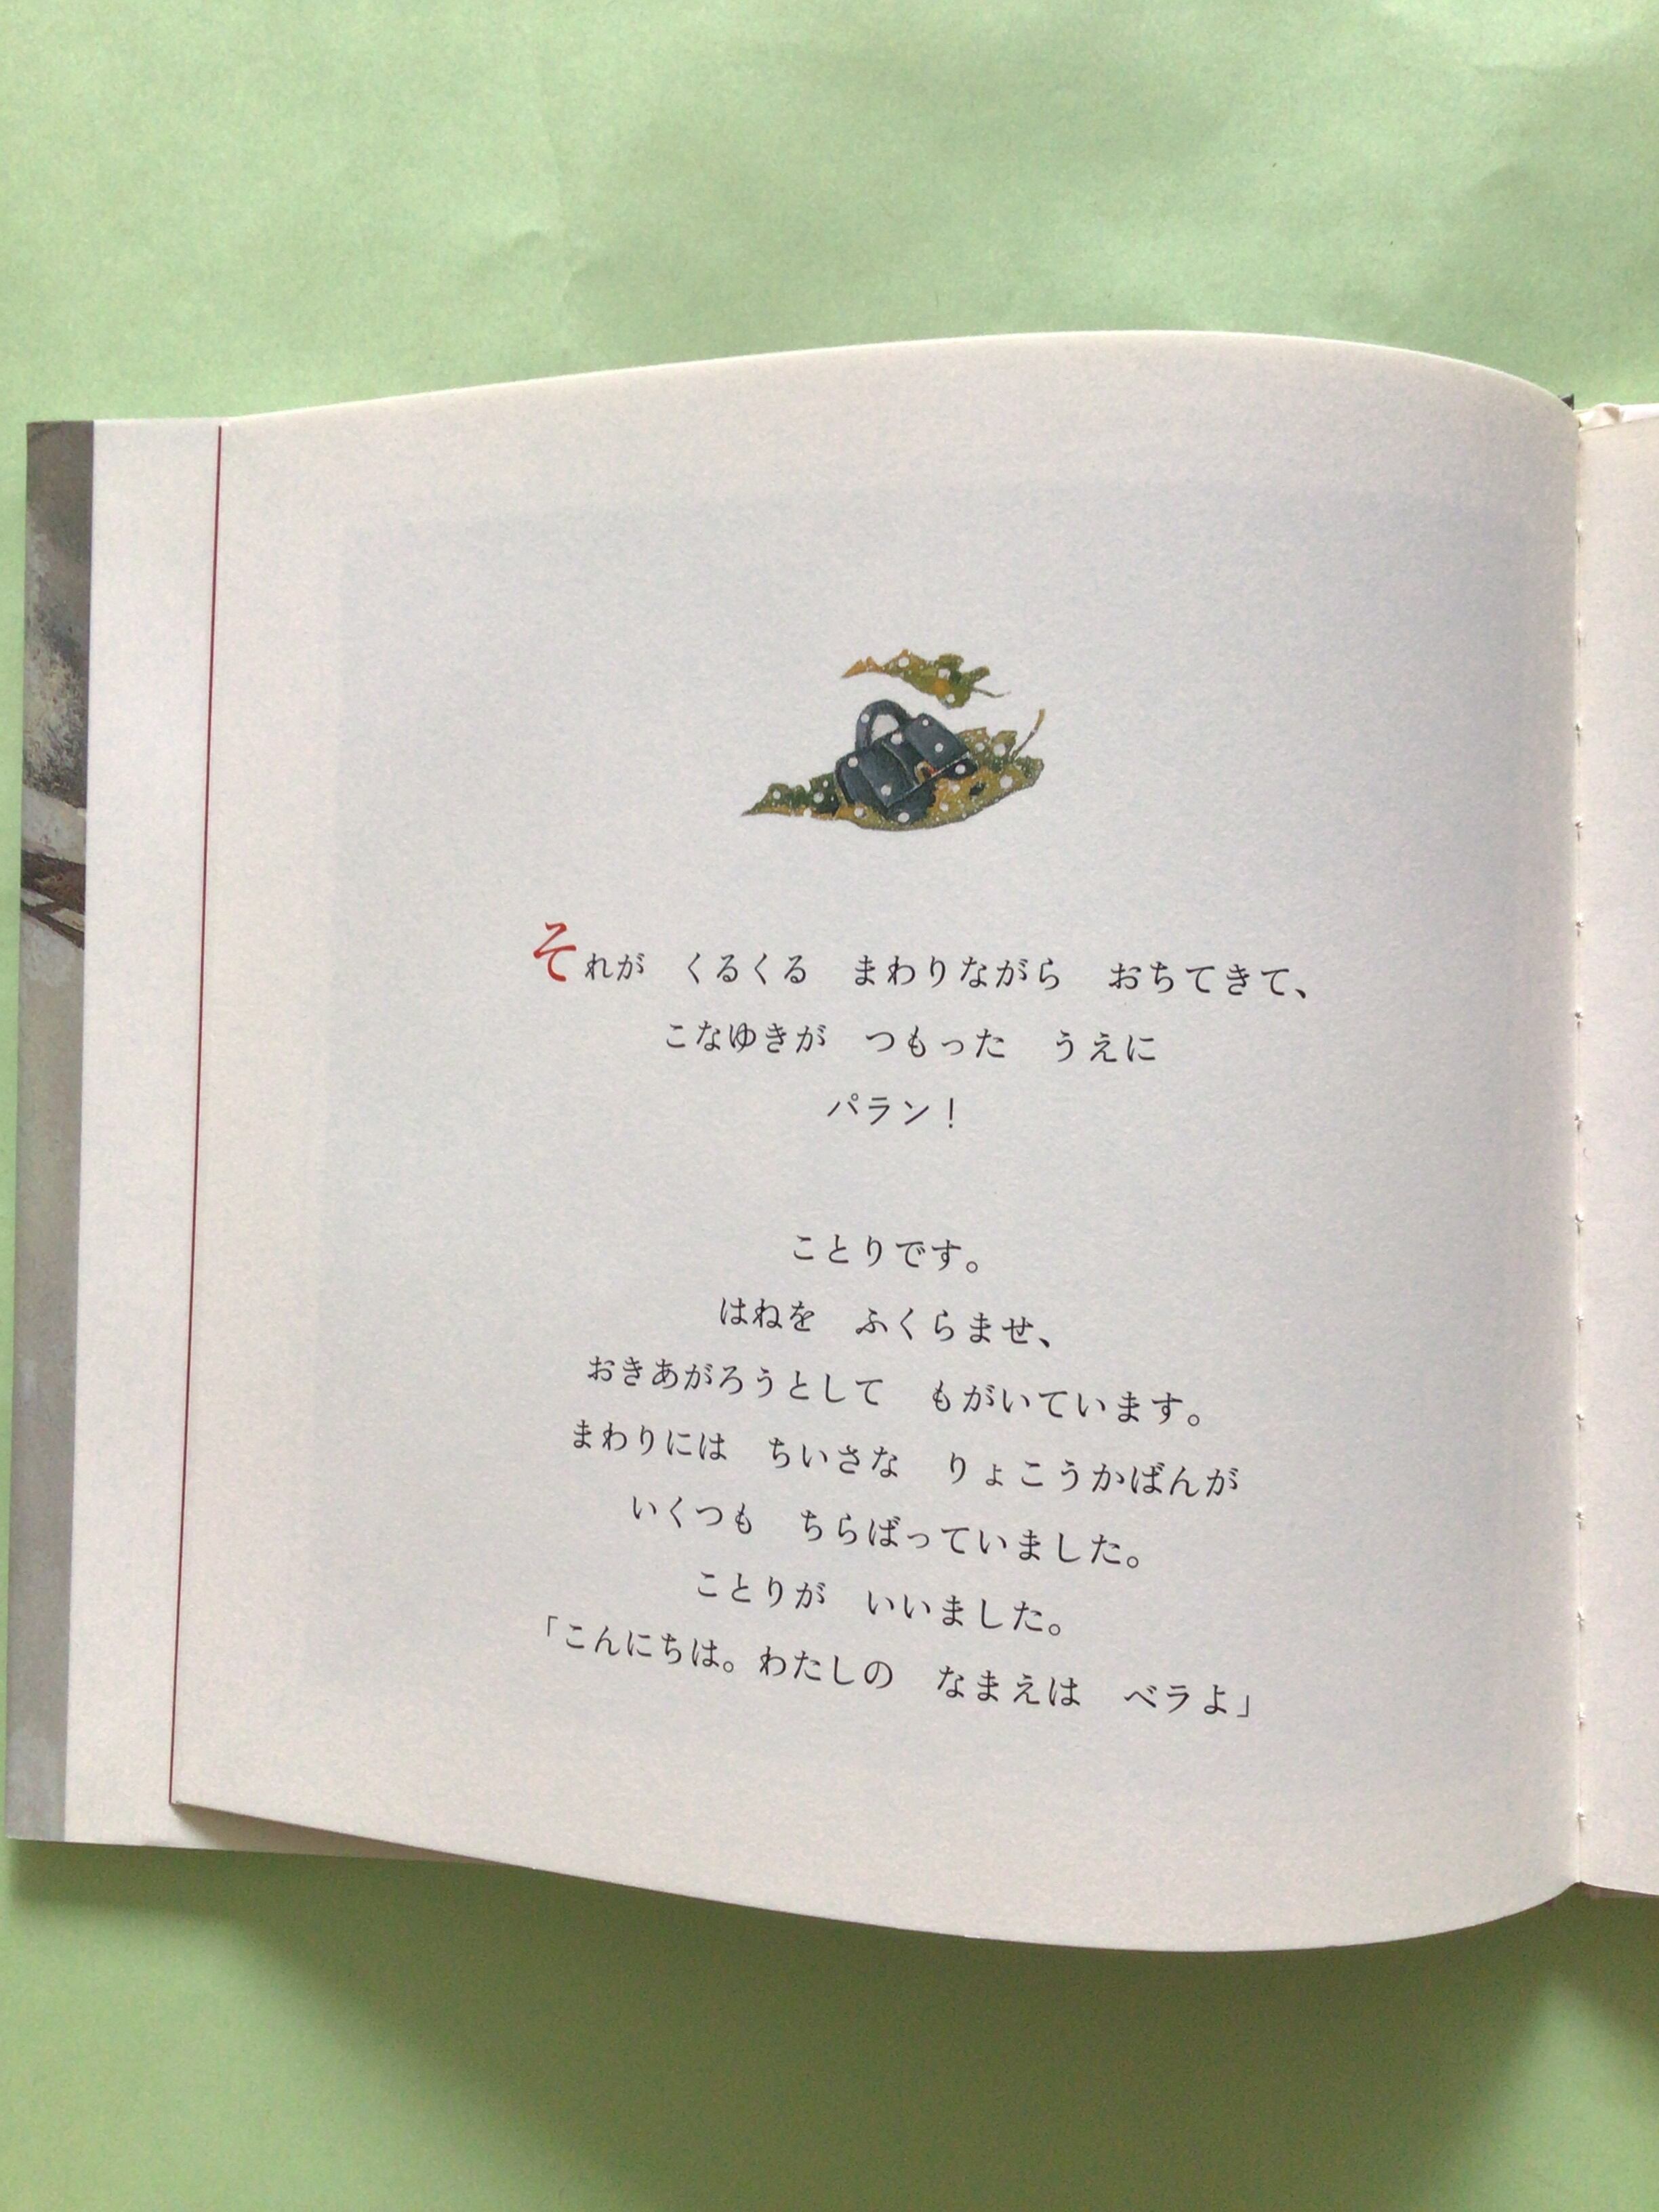 それが　くるくる　まわりながら　おちてきて、
こなゆきが　つもった　うえに
パラン！
ことりです。
はねを　ふくらませ、
おきあがろうとして　もがいています。
まわりには　ちいさな　りょこうかばんが
いくつも　ちらばっていました。
ことりが　いいました。
「こんにちは。わたしの　なまえは　ベラよ」